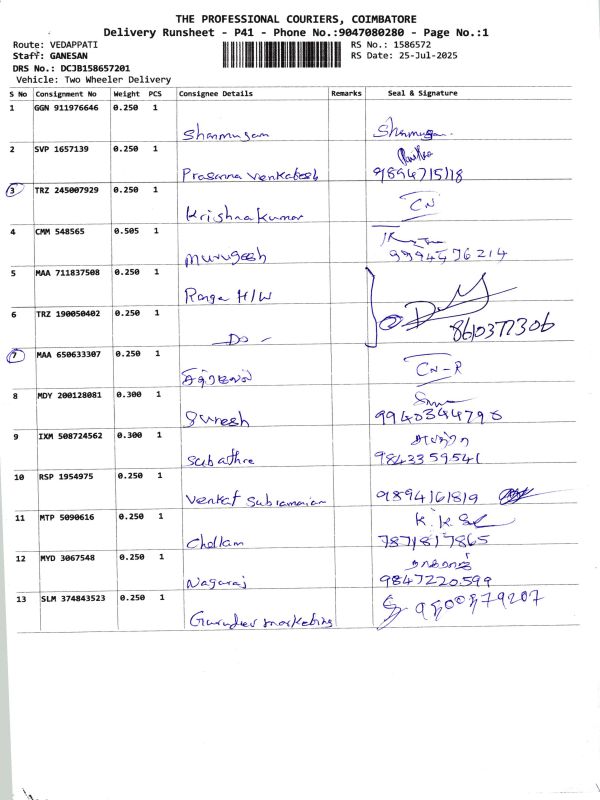 THE PROFESSIONAL COURIERS, COIMBATORE
Delivery Runsheet - P41 - Phone No.:9047080280 - Page No.:1
Route: VEDAPPATI
RS No.: 1586572
Staff: GANESAN
RS Date: 25-Jul-2025
DRS No.: DCJB158657201
Vehicle: Two Wheeler Delivery
S No Consignment No Weight PCS Consignee Details Remarks Seal & Signature
1 GGN 911976646 0.250 1
Shanmugam Shanmugam.
2 SVP 1657139 0.250 1
Prasanna Venkatesh 9894715118
3 TRZ 245007929 0.250 1
Krishna Kumar CN
4 CMM 548565 0.505 1
Murugesh 9994576214
5 MAA 711837508 0.250 1
Ranga H/W
6 TRZ 190050402 0.250 1
Do - 8610377306
7 MAA 650633307 0.250 1
CN-R
8 MDY 200128081 0.300 1
Suresh 9940344798
9 IXM 508724562 0.300 1
Subathre 9843359541
10 RSP 1954975 0.250 1
Venkat Subramanian 9894161819
11 MTP 5090616 0.250 1
K. K.
Chellam 7871817865
12 MYD 3067548 0.250 1
நாகராஜ்
Nagaraj 9847220599
13 SLM 374843523 0.250 1
Gurudev marketing 9500579207